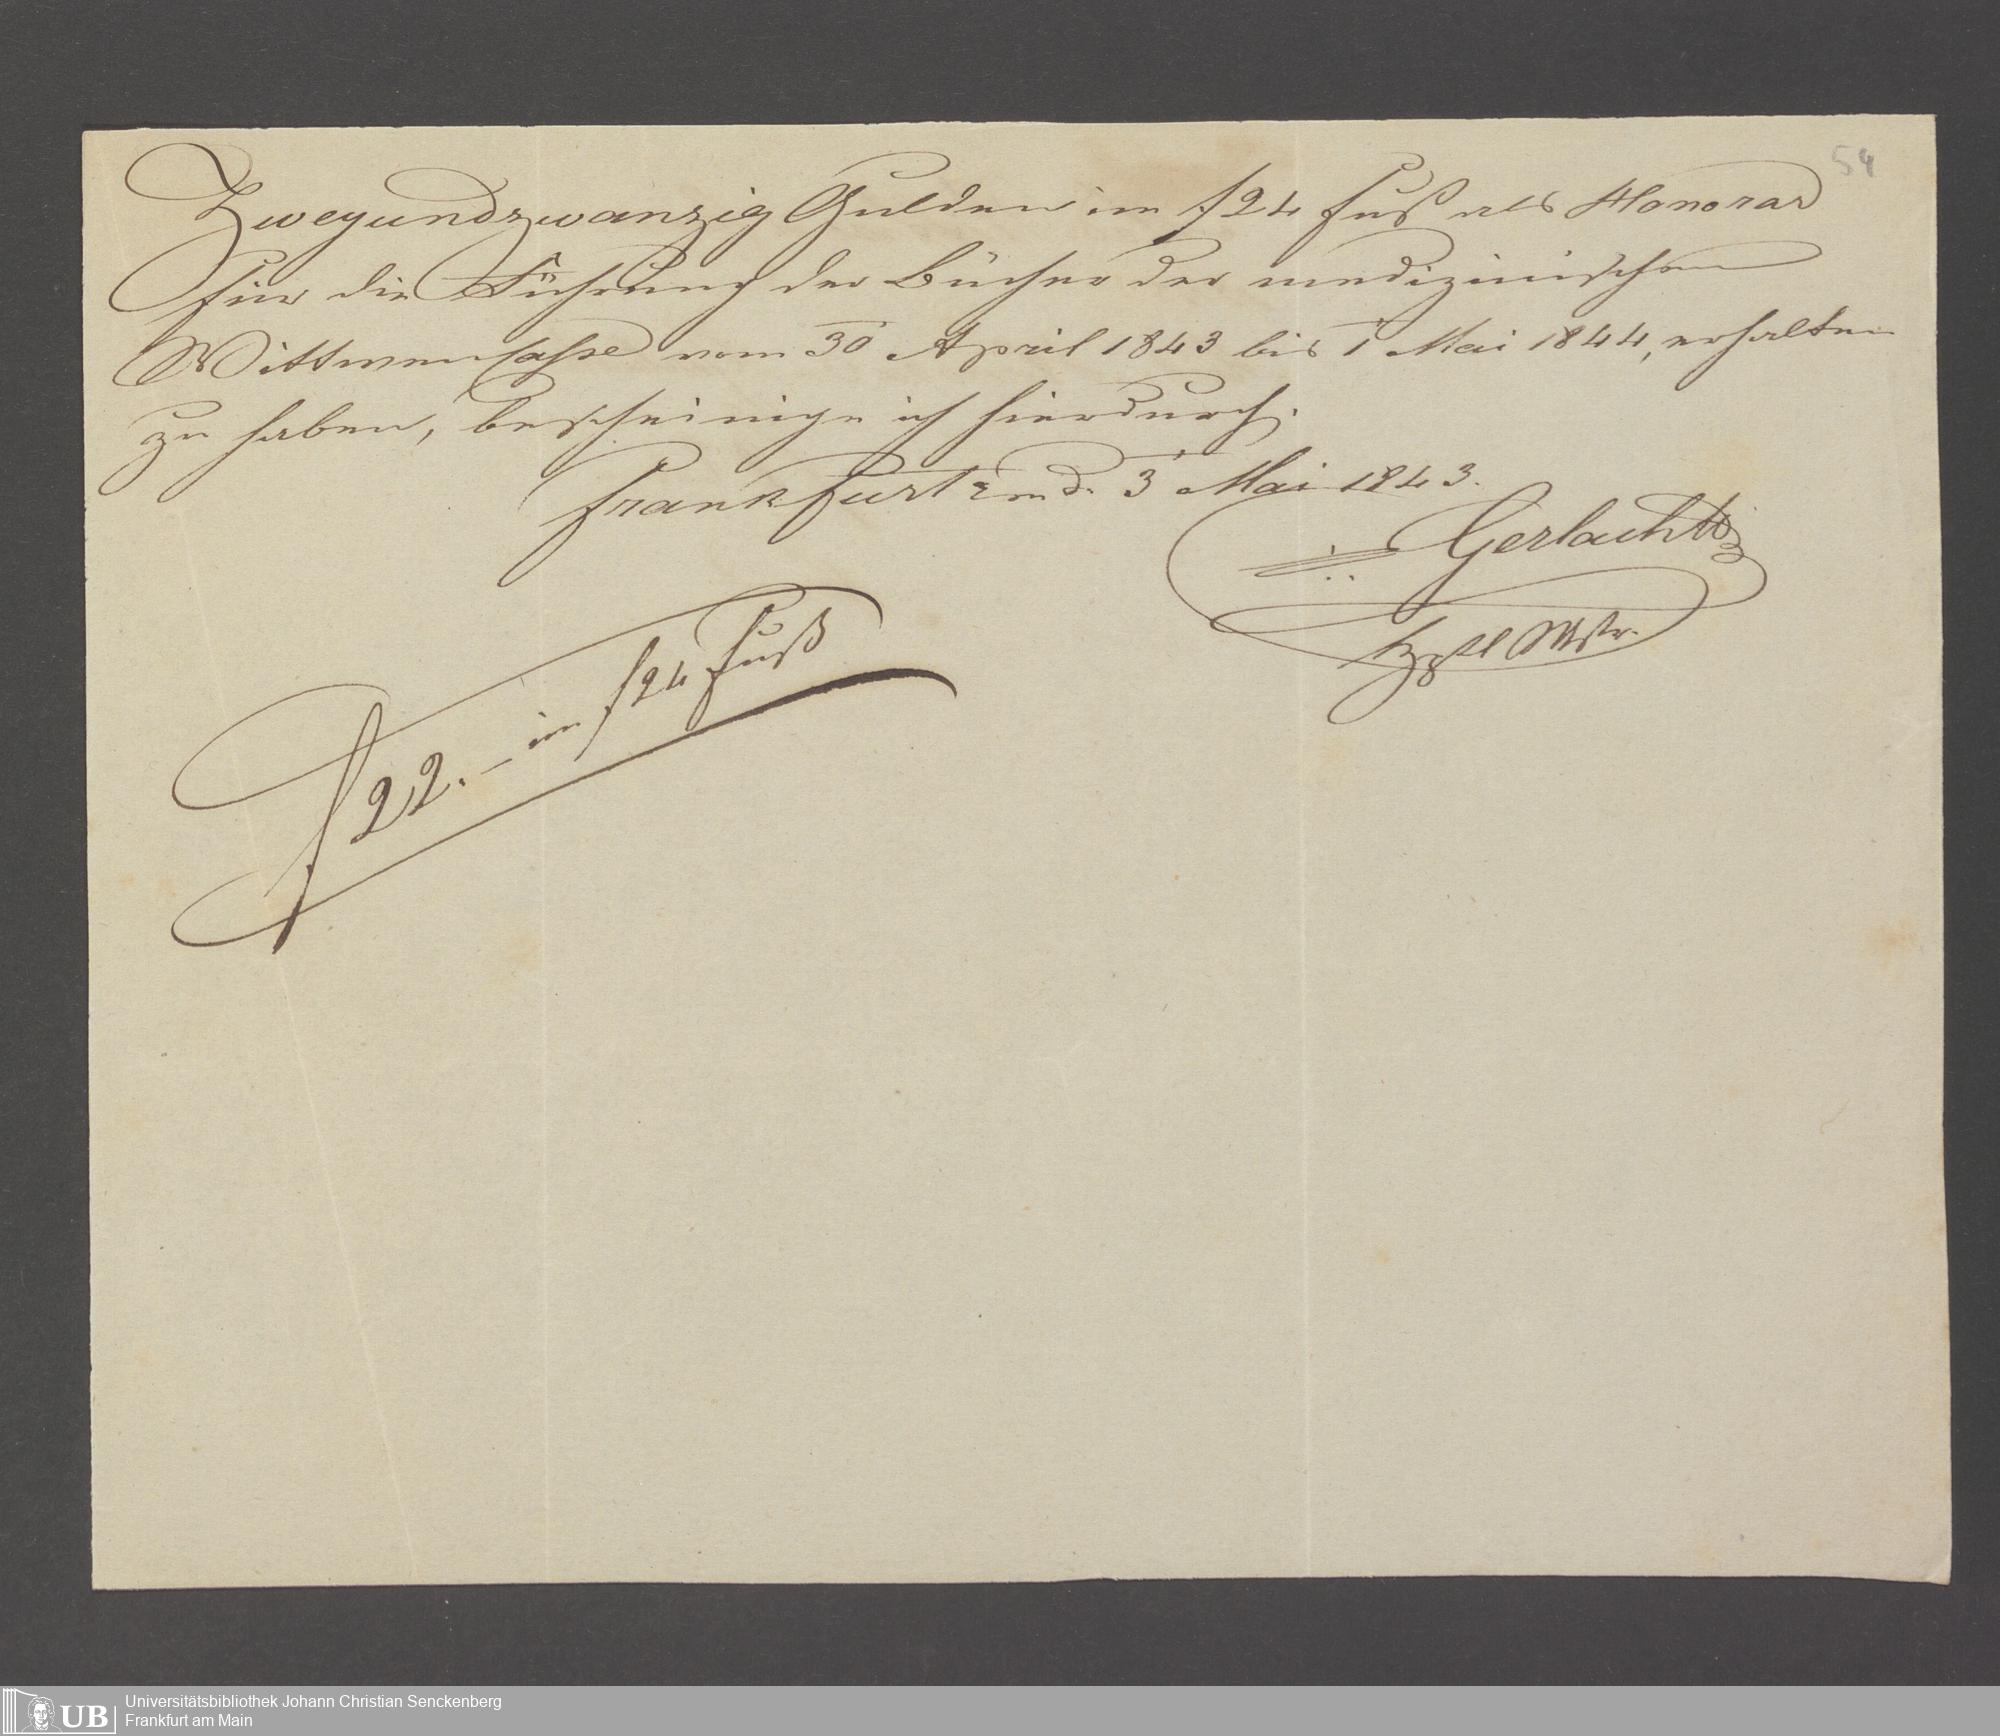 54
Zweyundzwanzig Gulden im f24 Fuß als Honorar
für die Führung der Bücher der medizinischen
Wittwencasse vom 30 April 1843 bis 1 Mai 1844, erhalten
zu haben, bescheinige ich hierdurch.
Frankfurt d. 3 Mai 1843.
Gerlach
f 22. – im f24 Fuß
UB
Universitätsbibliothek Johann Christian Senckenberg
Frankfurt am Main